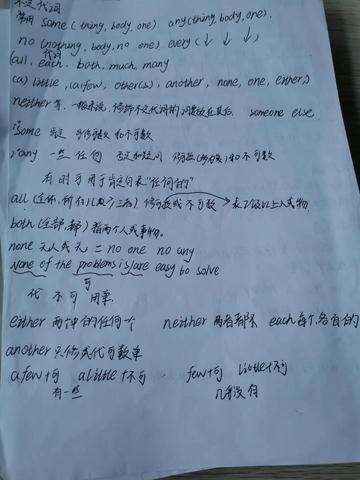 不定代词
常用 some (thing, body, one). any(thing, body, one).
no (nothing, body, no one) every (↓ ↓ ↓)
代词
(all, each. both, much, many
(a) little, (a)few, other(s), another, none, one, either,
neither 等. 一般来说, 修饰不定代词的词放在其后. someone else.
some 肯定 可数和不可数
any 一些 任何 否定和疑问 可数(多为复) 和 不可数
有时可用于肯定句表"任何的"
all (全体, 所有) 可数或不可数 → 表三者以上人或物
both (全部, 都) 指两个人或事物.
none 无人或无 = no one no any
None of the problems is/are easy to solve
可
代 不可 用单.
either 两个中的任何一个 neither 两者都不 each 每个, 各自的
another 只修或代可数单
a few+可 a little+不可 few+可 little+不可
有一些 几乎没有